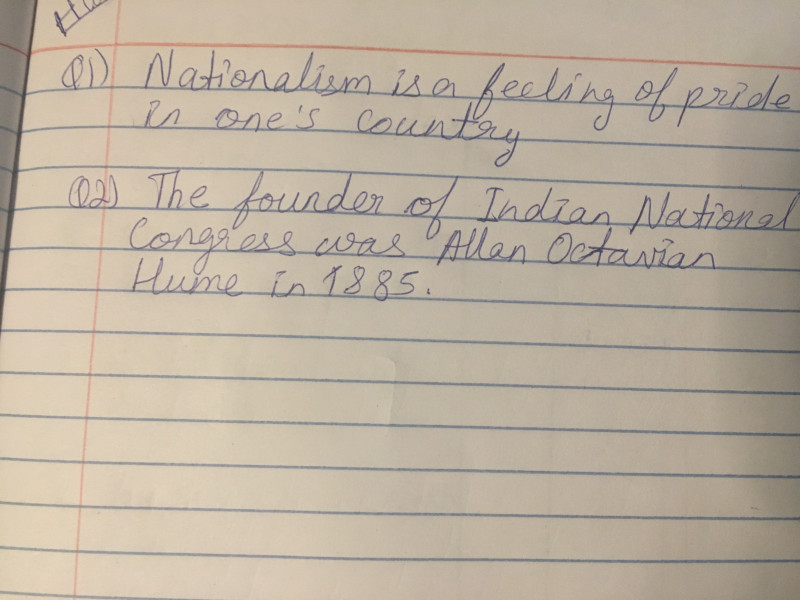 Q1) Nationalism is a feeling of pride
in one's country
Q2) The founder of Indian National
Congress was Allan Octavian
Hume in 1885.